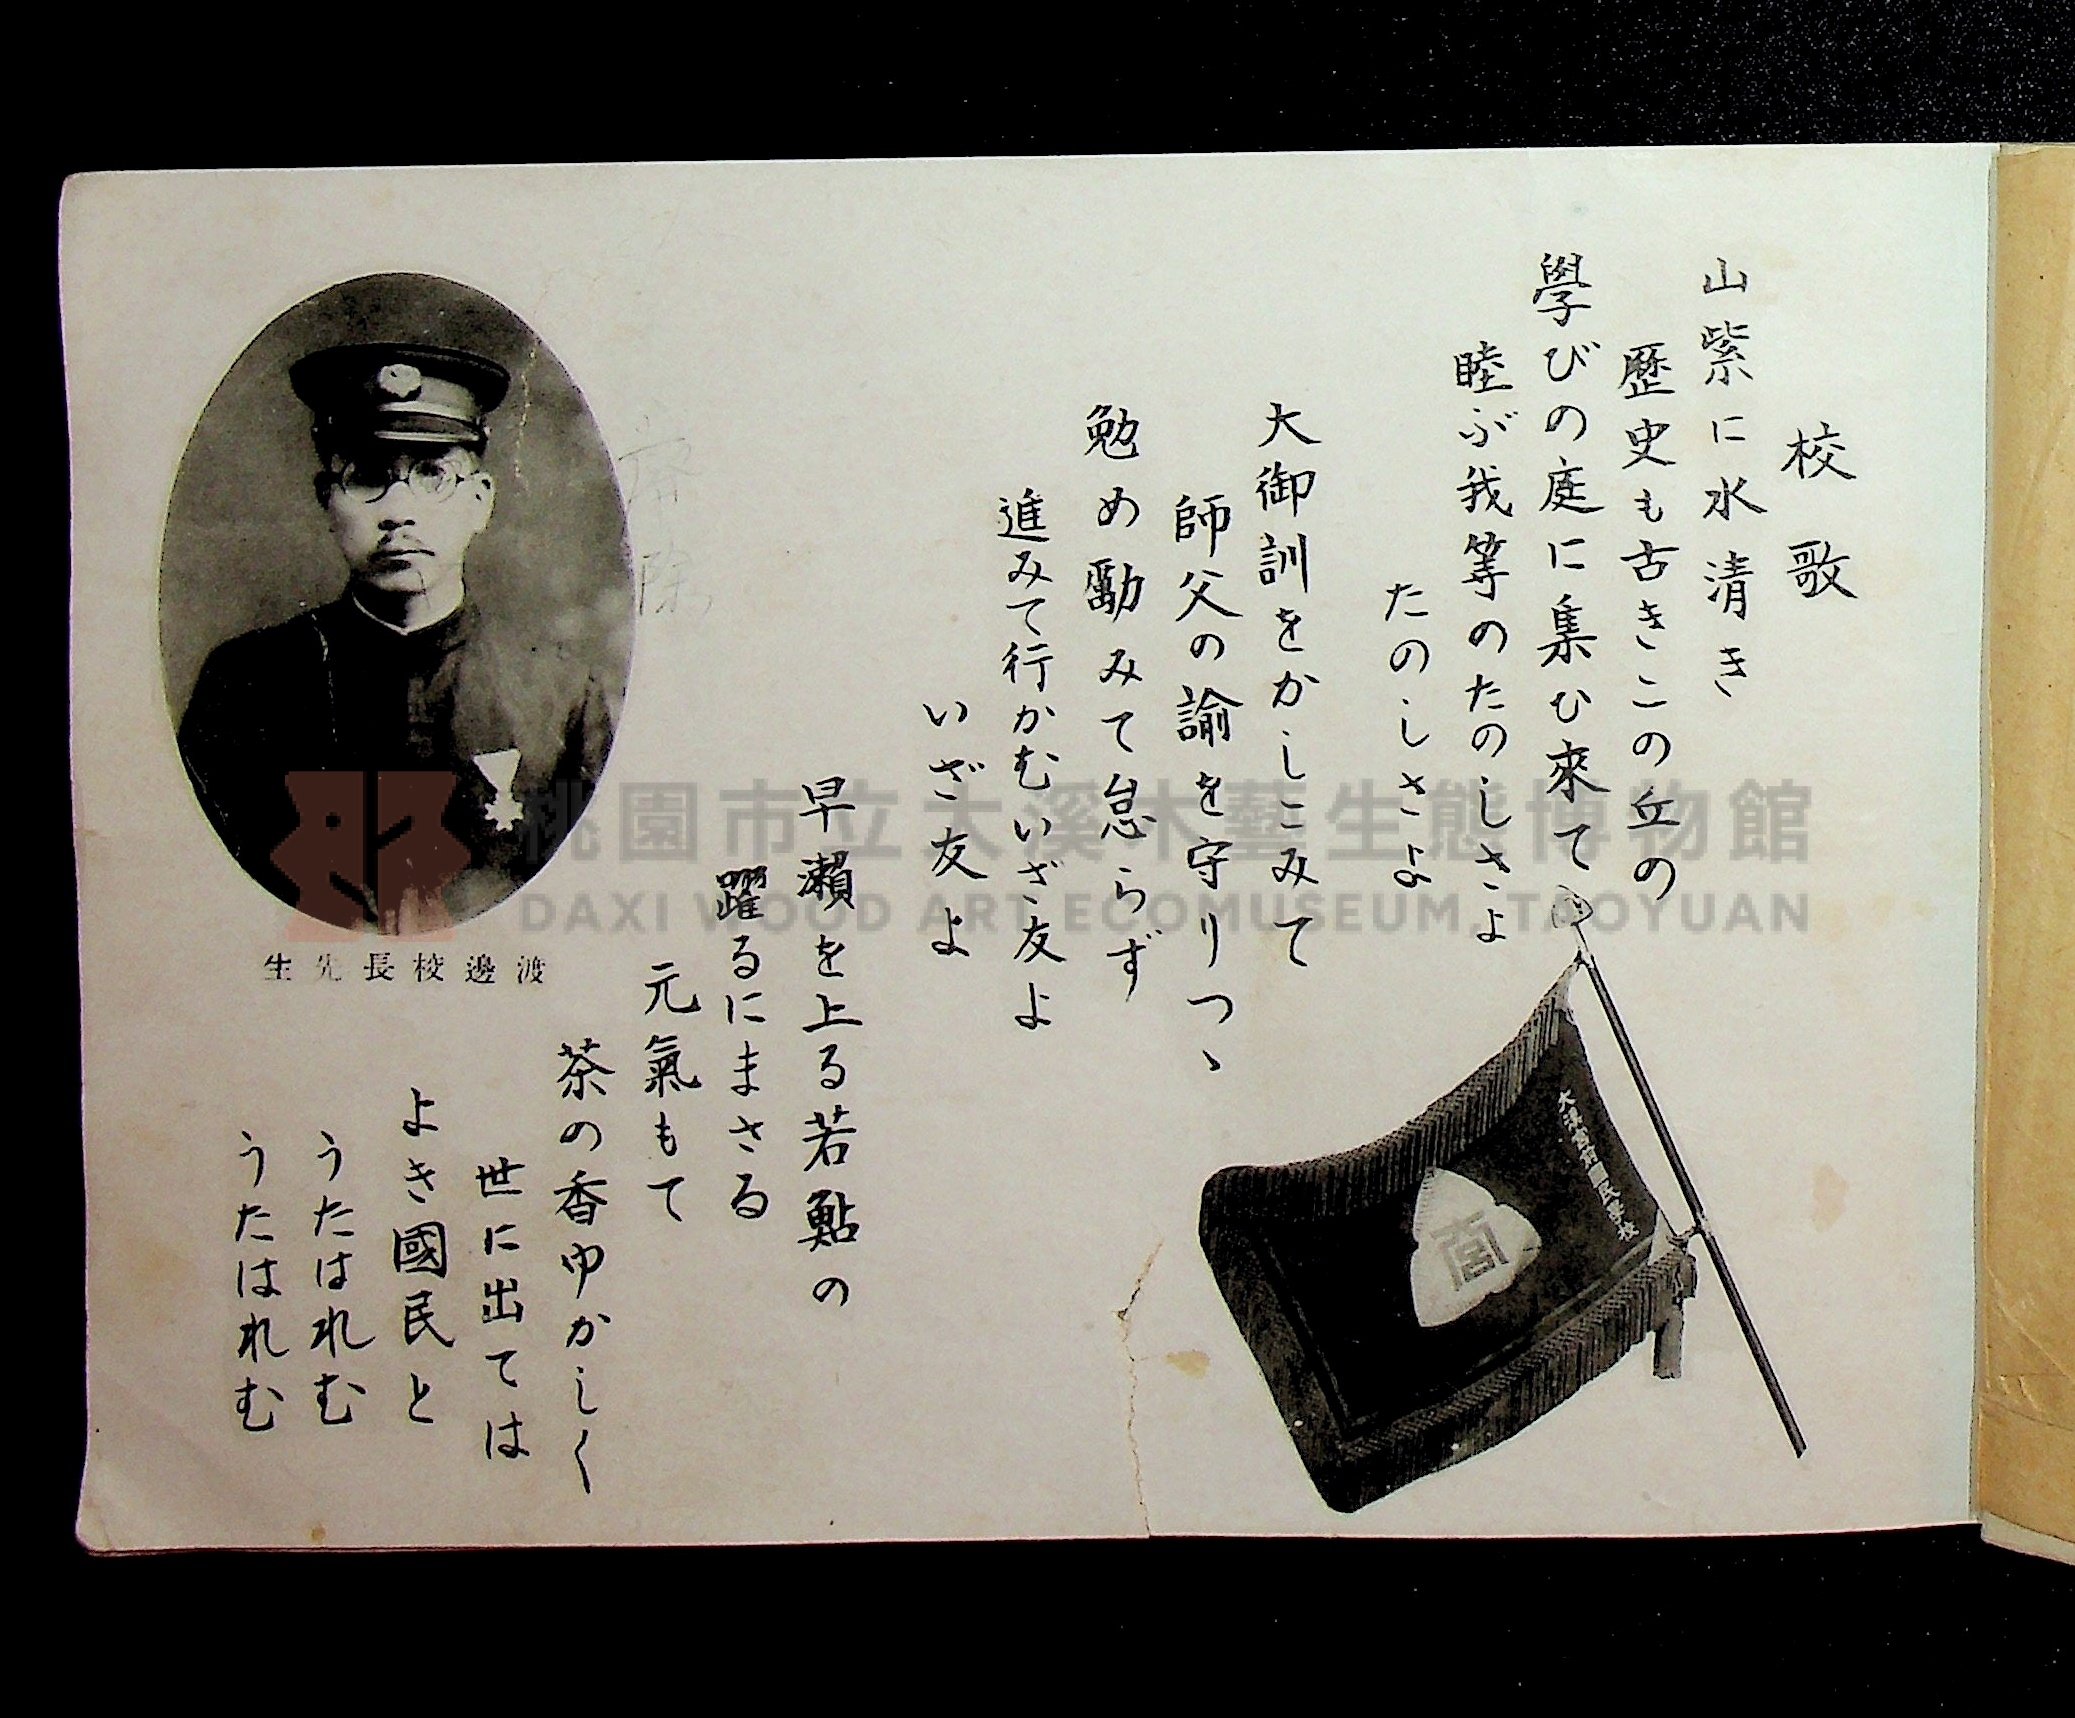 校歌
山紫に水清き
歴史も古きこの丘の
學びの庭に集ひ來て
睦ぶ我等のたのしさよ
たのしさよ
大御訓をかしこみて
師父の諭を守りつゝ
勉め勵みて怠らず
進みて行かむいざ友よ
いざ友よ
早瀬を上る若鮎の
躍るにまさる
元氣もて
茶の香ゆかしく
世に出ては
よき國民と
うたはれむ
うたはれむ
渡邊校長先生
大溪宮前國民學校
宮
桃園市立大溪木藝生態博物館
DAXI WOOD ART ECOMUSEUM, TAOYUAN